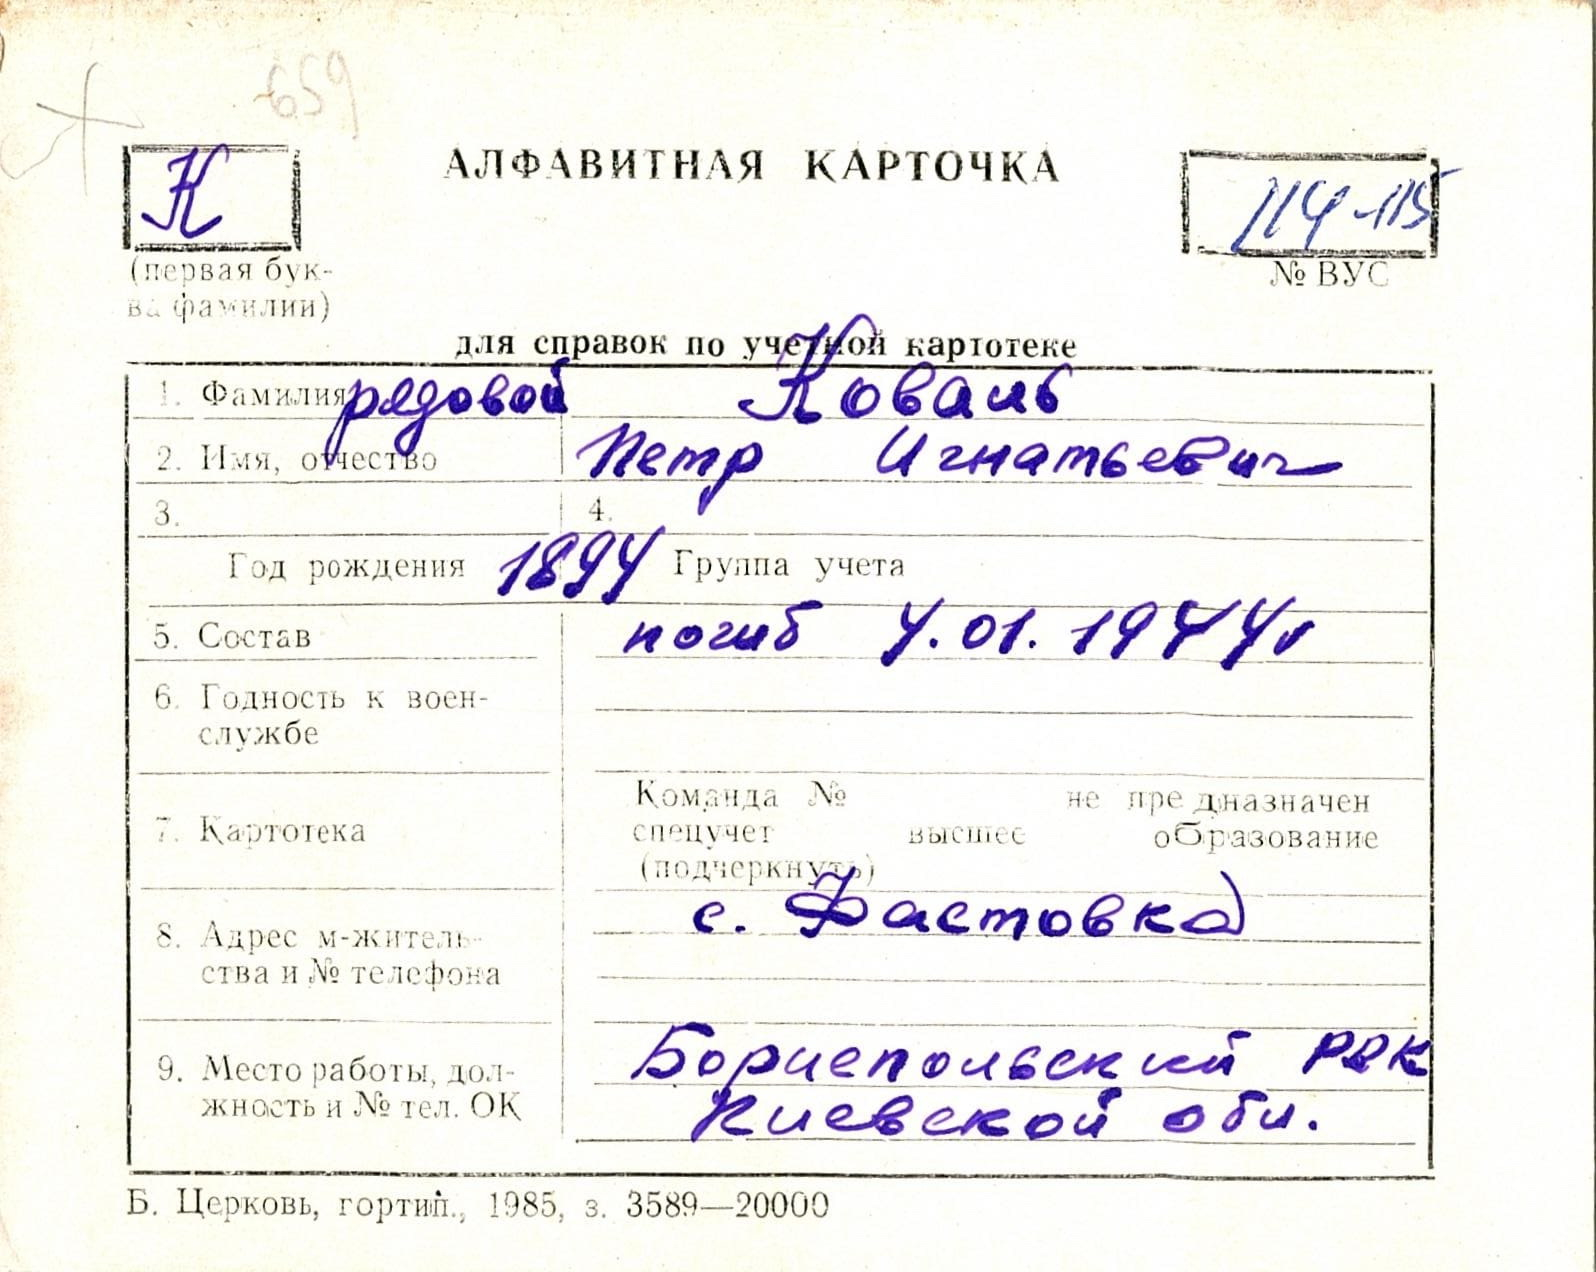 659
АЛФАВИТНАЯ КАРТОЧКА
К
114-115
(первая бук-
ва фамилии)
№ ВУС
для справок по учетной картотеке
1. Фамилия рядовой Коваль
2. Имя, отчество Петр Игнатьевич
3. 4.
Год рождения 1894 Группа учета
5. Состав погиб 4.01.1944г
6. Годность к воен-
службе
Команда № не предназначен
7. Картотека спецучет высшее образование
(подчеркнуть)
8. Адрес м-житель- с. Фастовка
ства и № телефона
9. Место работы, дол- Бориспольский РВК
жность и № тел. ОК Киевской обл.
Б. Церковь, гортип., 1985, з. 3589—20000